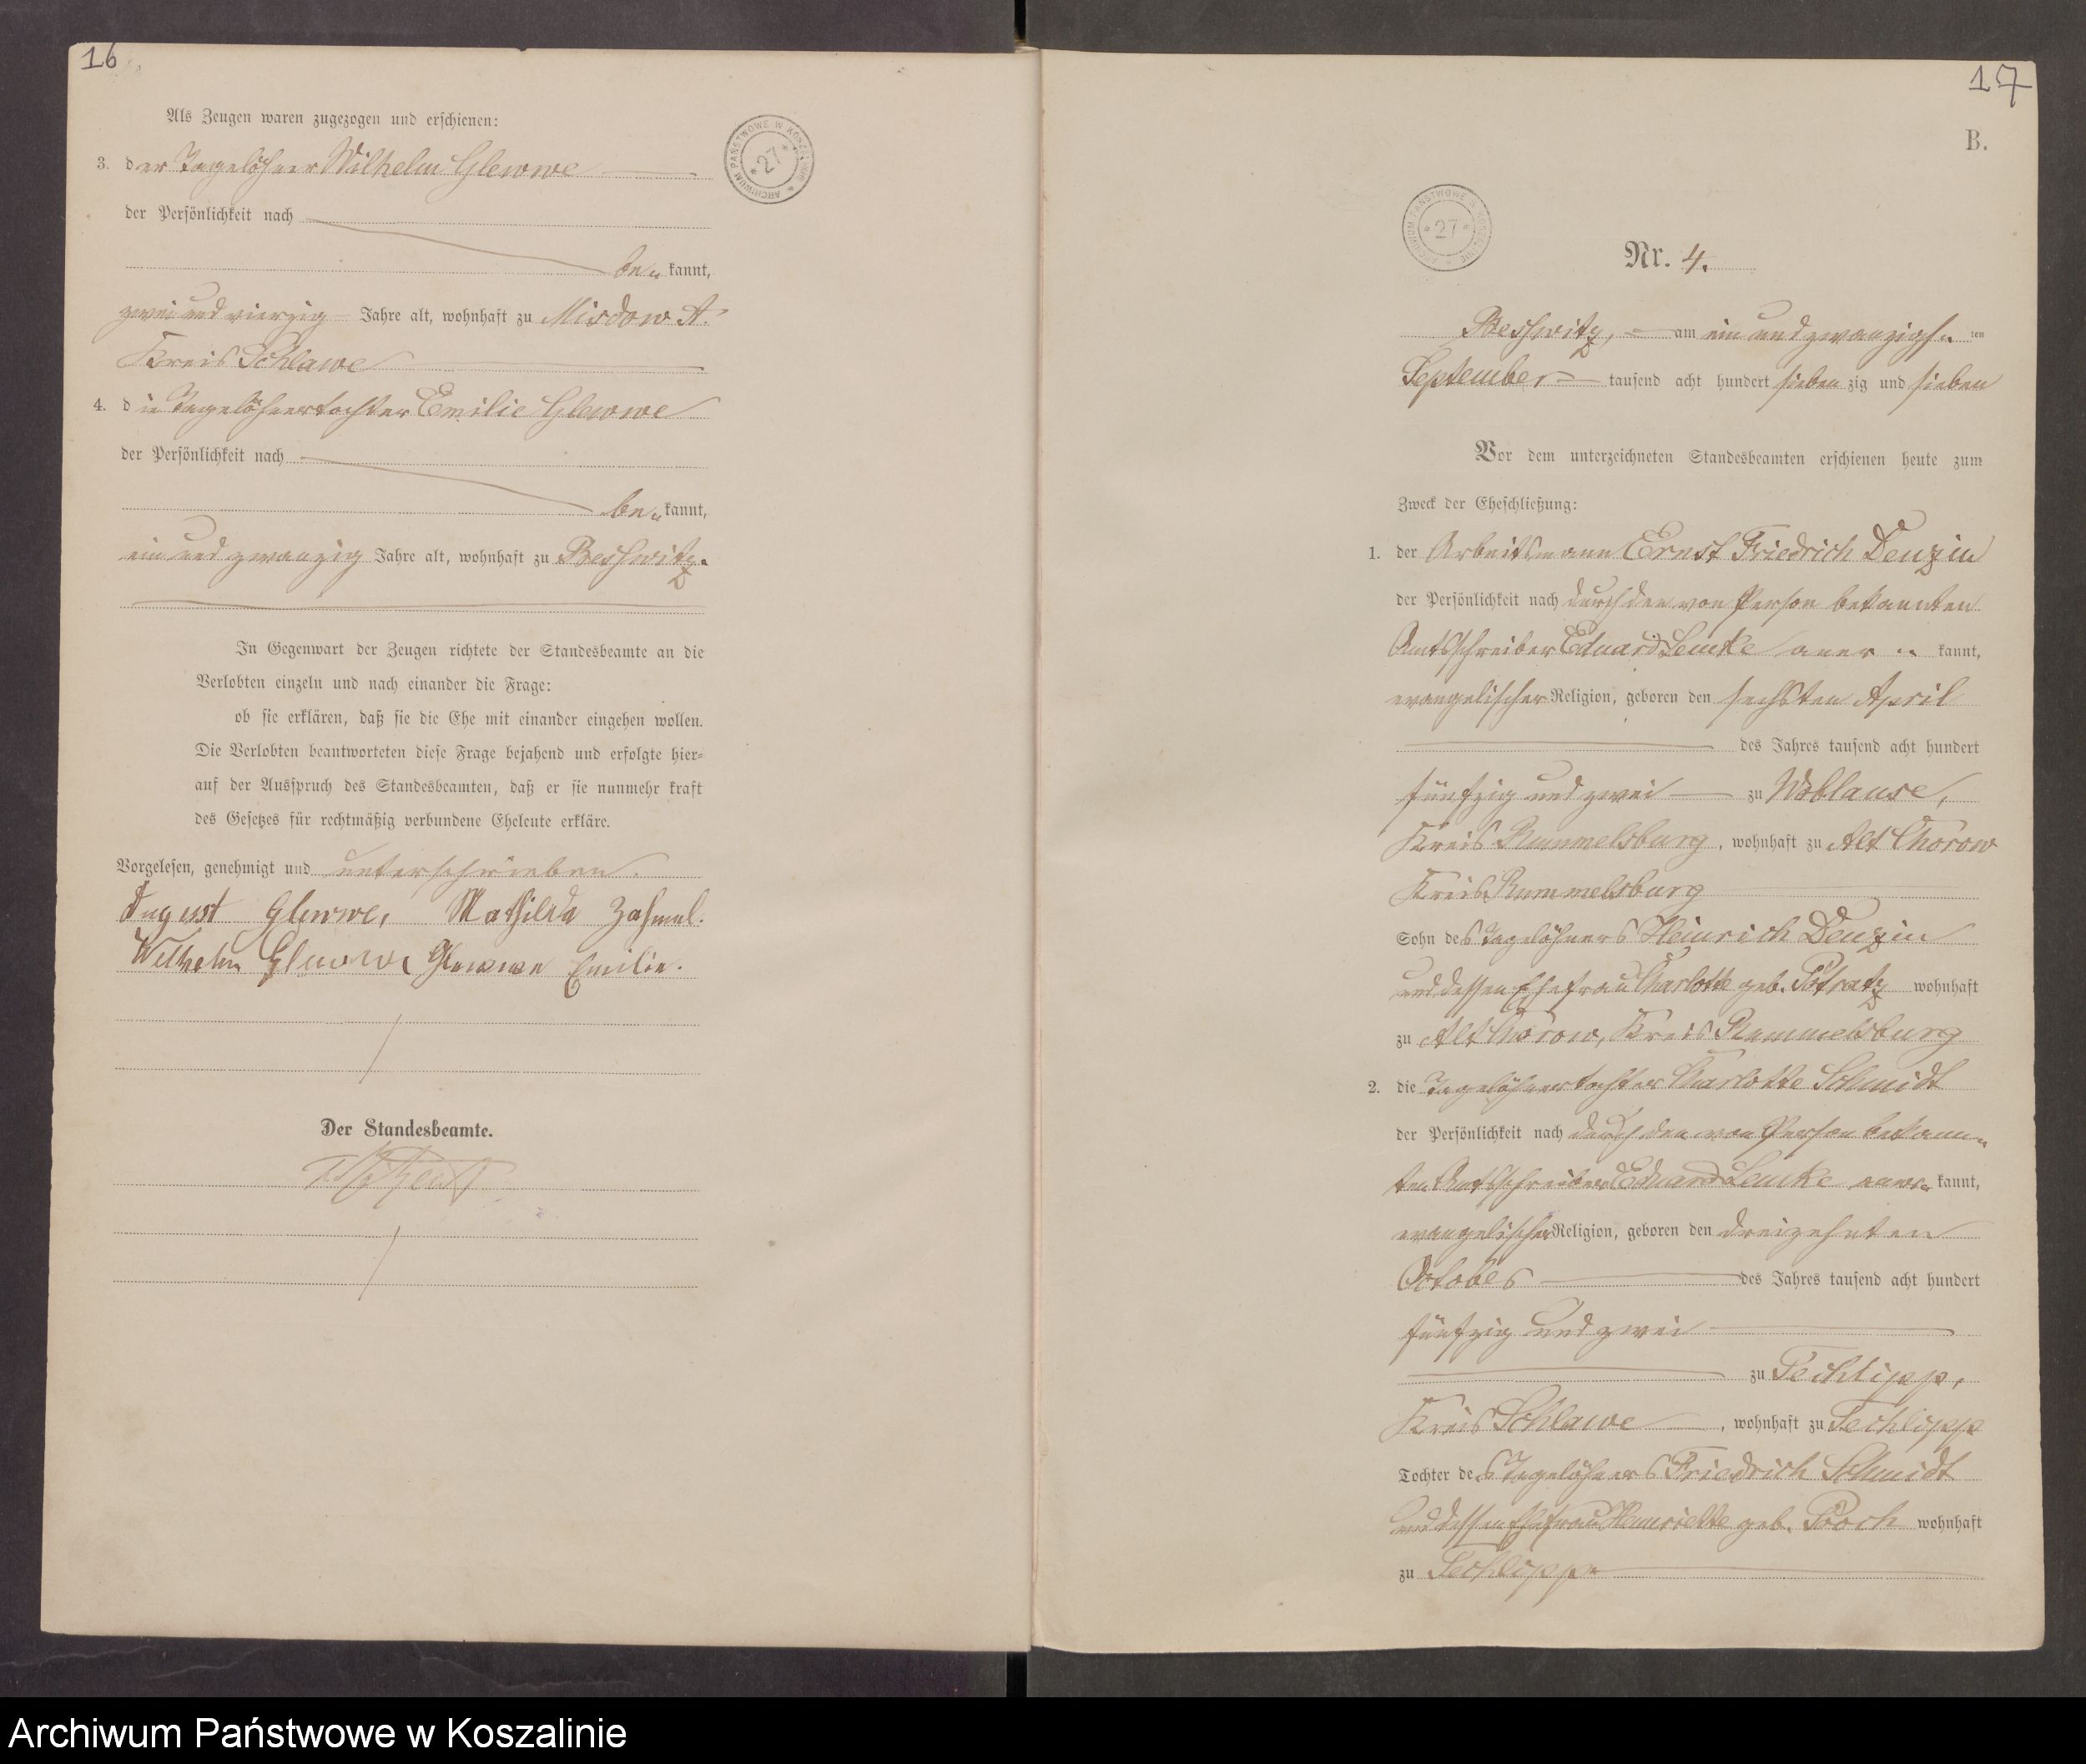 16
Als Zeugen waren zugezogen und erschienen:
3. der Tagelöhner Wilhelm Glewwe
der Persönlichkeit nach
be„ kannt,
zwei und vierzig Jahre alt, wohnhaft zu Misdow A.
Kreis Schlawe
4. die Tagelöhnertochter Emilie Glewwe
der Persönlichkeit nach
be„ kannt,
ein und zwanzig Jahre alt, wohnhaft zu Beßwitz.
In Gegenwart der Zeugen richtete der Standesbeamte an die
Verlobten einzeln und nach einander die Frage:
ob sie erklären, daß sie die Ehe mit einander eingehen wollen.
Die Verlobten beantworteten diese Frage bejahend und erfolgte hier-
auf der Ausspruch des Standesbeamten, daß er sie nunmehr kraft
des Gesetzes für rechtmäßig verbundene Eheleute erkläre.
Vorgelesen, genehmigt und unterschrieben.
August Glewwe, Mathilde
Wilhelm Glewwe Glewwe Emilie.
Der Standesbeamte.
ARCHIWUM PAŃSTWOWE W KOSZALINIE
* 27 *
17
B.
ARCHIWUM PAŃSTWOWE W KOSZALINIE
* 27 *
Nr. 4.
Beßwitz, am ein und zwanzigst„ ten
September tausend acht hundert sieben zig und sieben
Vor dem unterzeichneten Standesbeamten erschienen heute zum
Zweck der Eheschließung:
1. der Arbeitsmann Ernst Friedrich Denzin
der Persönlichkeit nach durch den von Person bekannten
Amtsschreiber Eduard Lemke aner „ kannt,
evangelischer Religion, geboren den sechsten April
des Jahres tausend acht hundert
fünfzig und zwei zu Woblanse,
Kreis Rummelsburg, wohnhaft zu Alt Chorow
Kreis Rummelsburg
Sohn des Tagelöhners Heinrich Denzin
und dessen Ehefrau Charlotte geb. Potratz wohnhaft
zu Alt Chorow, Kreis Rummelsburg
2. die Tagelöhnertochter Charlotte Schmidt
der Persönlichkeit nach durch den von Person bekann„
ten Amtsschreiber Eduard Lemke aner„ kannt,
evangelischer Religion, geboren den dreizehnten
October des Jahres tausend acht hundert
fünfzig und zwei
zu Techlipp,
Kreis Schlawe, wohnhaft zu Techlipp
Tochter des Tagelöhners Friedrich Schmidt
und dessen Ehefrau Henriette geb. Pooch wohnhaft
zu Techlipp
Archiwum Państwowe w Koszalinie